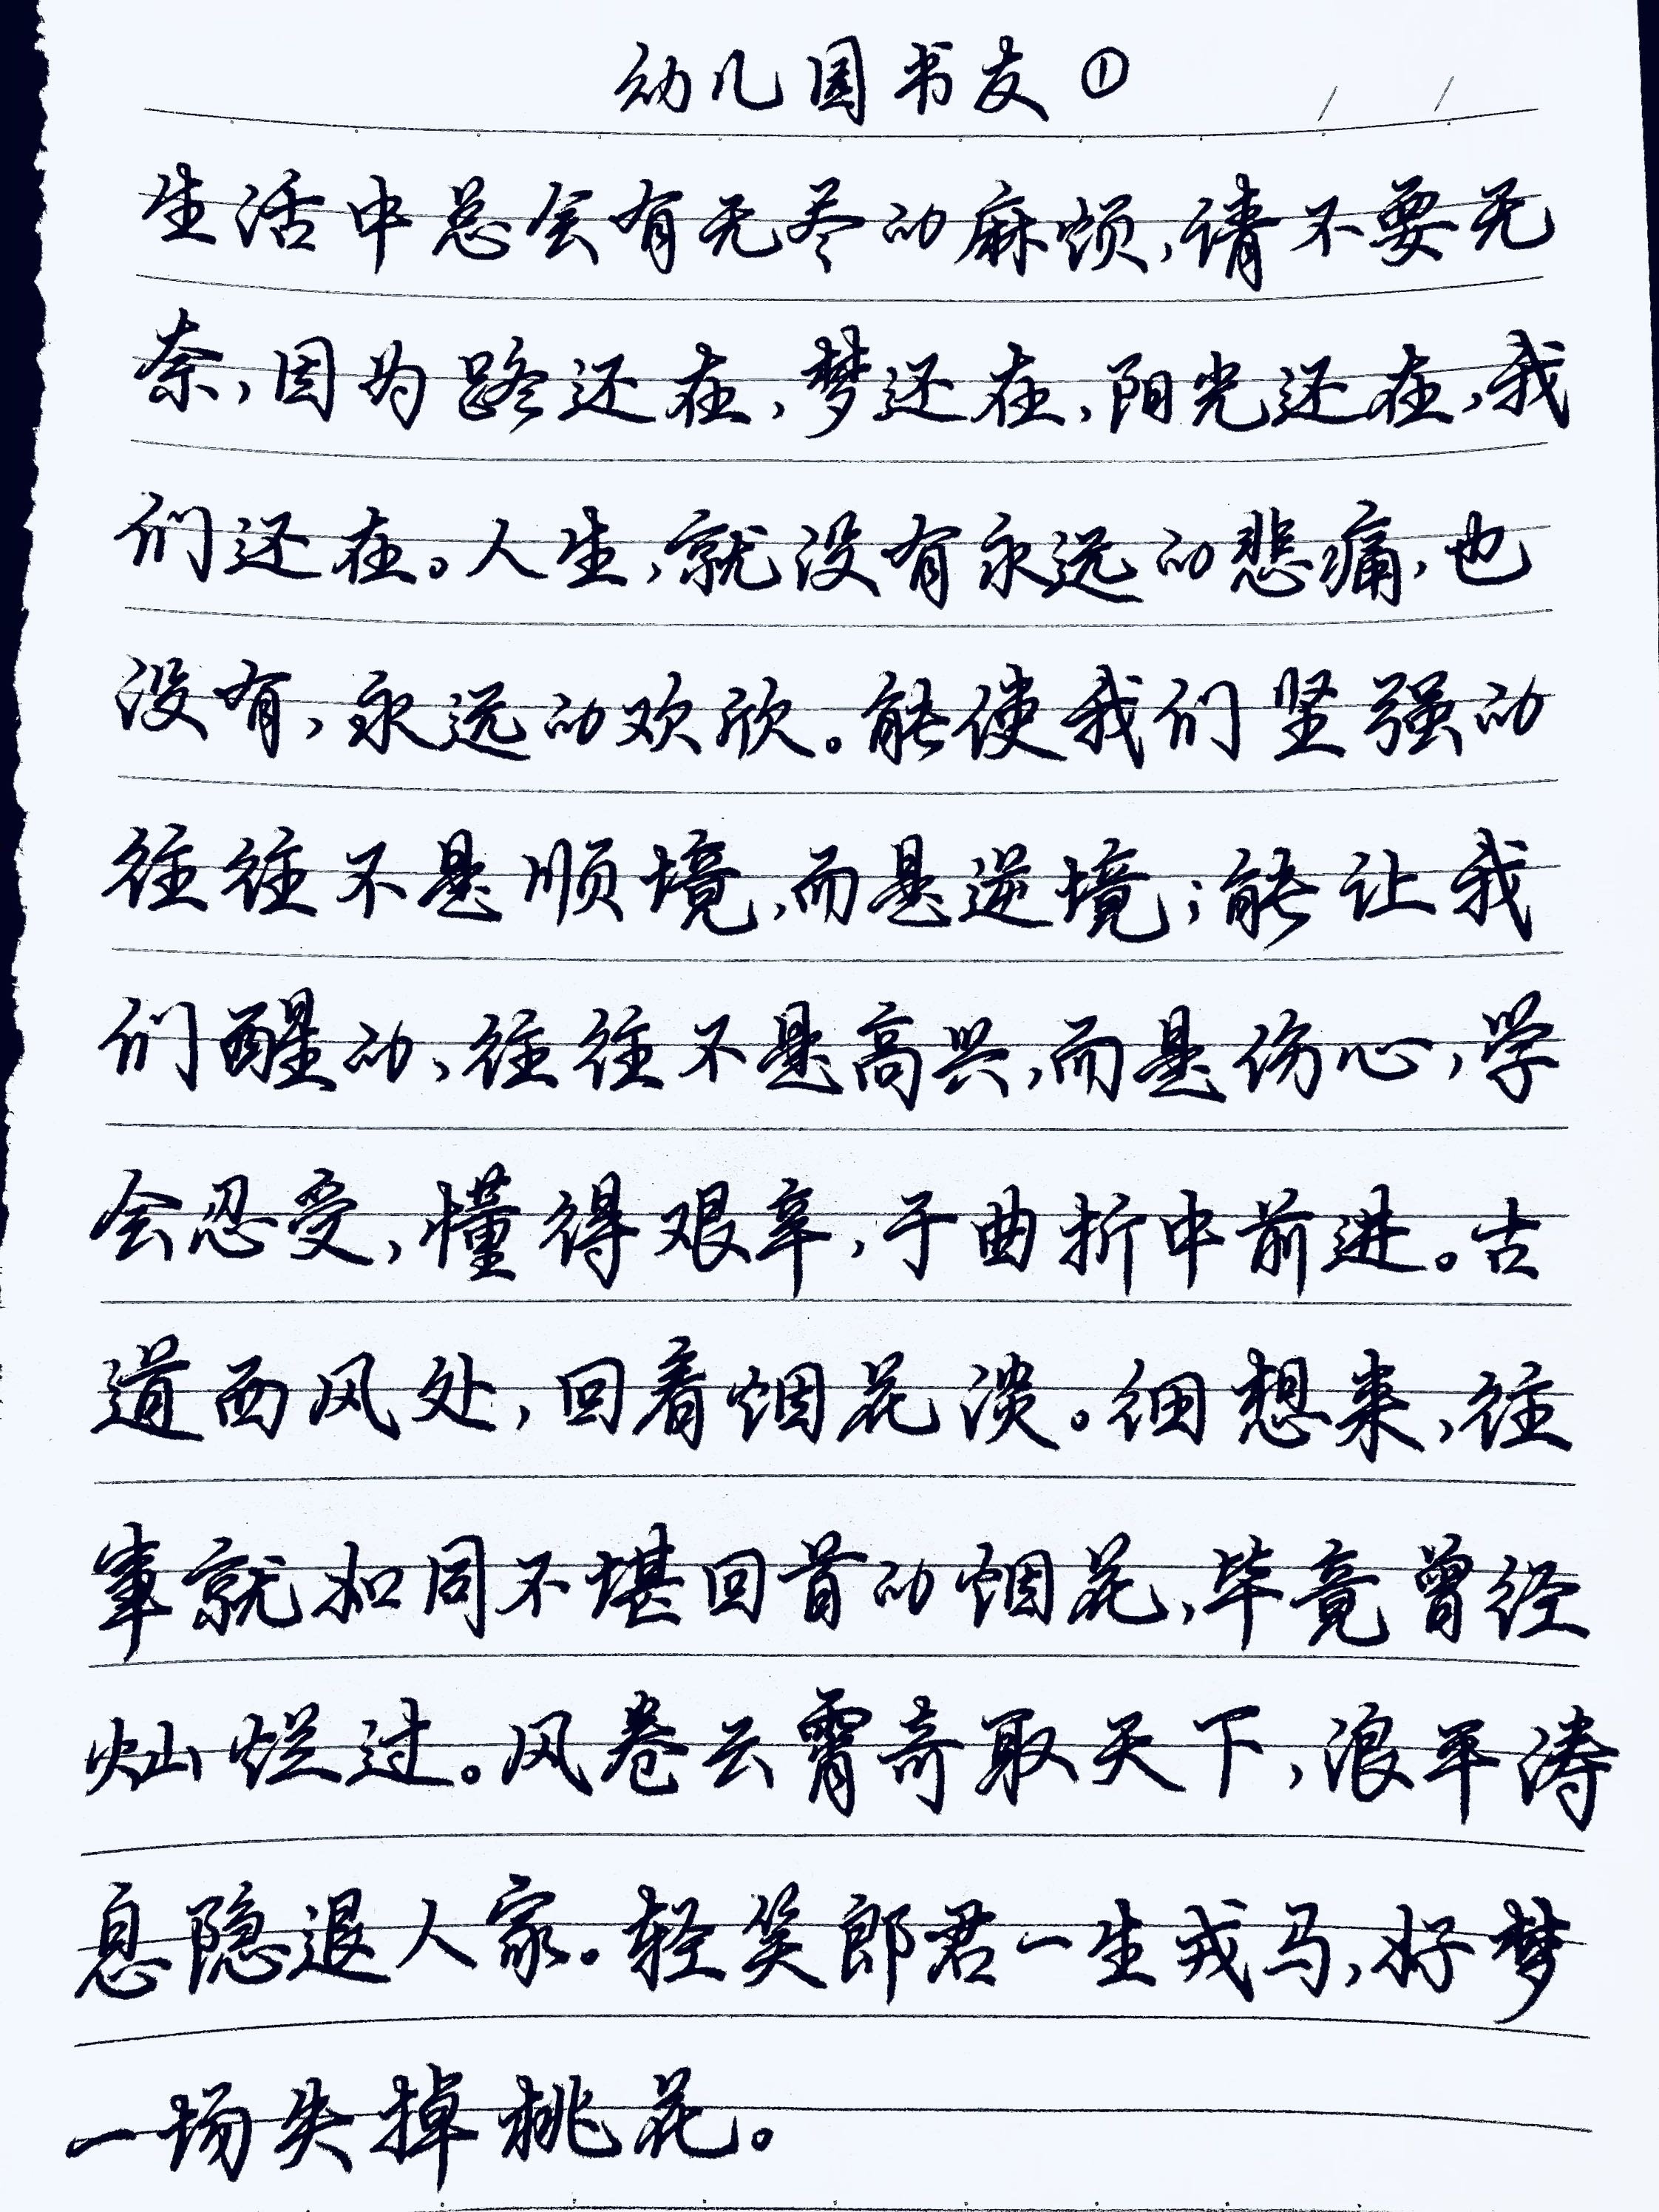 幼儿园书友①
生活中总会有无尽的麻烦,请不要无
奈,因为路还在,梦还在,阳光还在,我
们还在。人生,就没有永远的悲痛,也
没有,永远的欢欣。能使我们坚强的
往往不是顺境,而是逆境;能让我
们醒的,往往不是高兴,而是伤心,学
会忍受,懂得艰辛,于曲折中前进。古
道西风处,回看烟花淡。细想来,往
事就如同不堪回首的烟花,毕竟曾经
灿烂过。风卷云霄奇取天下,浪平涛
息隐退人家。轻笑郎君一生戎马,好梦
一场失掉桃花。